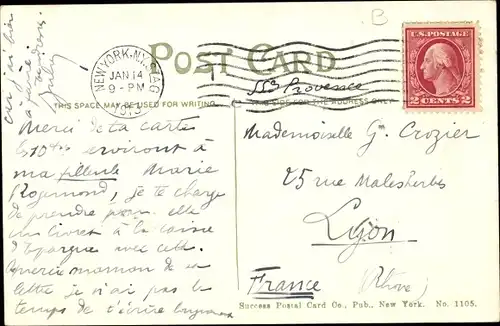 B
POST CARD
NEW YORK, N.Y. STA. G
JAN 14
9 - PM
1915
U.S. POSTAGE
2 CENTS 2
SS Provence
THIS SPACE MAY BE USED FOR WRITING.
THIS SIDE FOR THE ADDRESS ONLY.
Merci de ta carte
environt à
ma filleule Marie
je te charge
de prendre pour elle
un livret à la caisse
d'Epargne avec cela.
maman de sa
lettre je n'ai pas le
temps de t'écrire
Mademoiselle G. Crozier
25 rue Malesherbes
Lyon
France (Rhône)
Success Postal Card Co., Pub., New York. No. 1105.